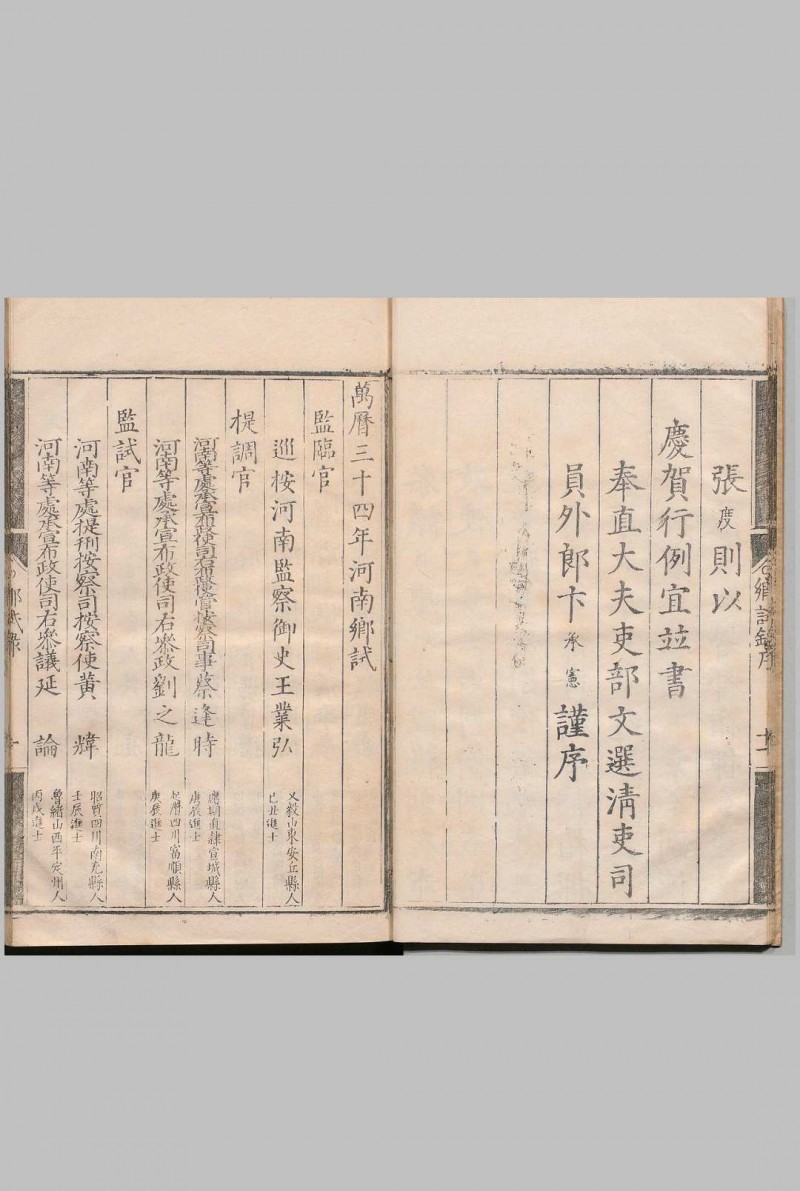 張度則以
慶賀行例宜並書
奉直大夫吏部文選清吏司
員外郎卞承憲謹序
萬曆三十四年河南鄉試
監臨官
巡按河南監察御史王業弘
乂毅山東安丘縣人
己丑進士
提調官
河南等處承宣布政使司右布政使管按察司事蔡逢時
應期直隸宣城縣人
庚辰進士
河南等處承宣布政使司右參政劉之龍
四川富順縣人
庚辰進士
監試官
河南等處提刑按察司按察使黃煒
昭質四川南充縣人
壬辰進士
河南等處承宣布政使司右參議延論
魯緒山西平定州人
丙戌進士
鄉試錄序
十一